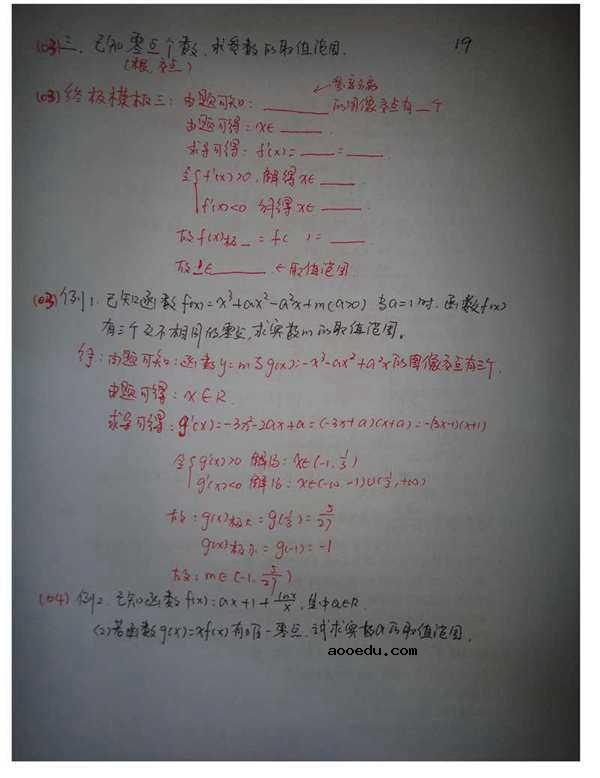 (03) 三、已知零点个数,求参数的取值范围. 19
(根、交点)
(03) 终极模板三: 由题可知: ______ 的图像交点有__个
由题可得: x∈ ____.
求导可得: f'(x)= ____ = ____.
令{ f'(x)>0, 解得 x∈ ____
f'(x)<0 解得 x∈ ____.
故 f(x)极_ = f( ) = ____
故 ∈ ____. ← 取值范围
(03) 例1. 已知函数 f(x)=x³+ax²-a²x+m(a>0) 当a=1时. 函数f(x)
有三个互不相同的零点,求实数m的取值范围。
解: 由题可知: 函数y=m与g(x)=-x³-ax²+a²x的图像交点有三个.
由题可得: x∈R.
求导可得: g'(x)=-3x²-2ax+a=(-3x+a)(x+a)=-(3x-1)(x+1)
令{ g'(x)>0 解得: x∈(-1, 1/3)
g'(x)<0 解得: x∈(-∞, -1)∪(1/3, +∞)
故: g(x)极大=g(1/3)=5/27
g(x)极小=g(-1)=-1
故: m∈(-1, 5/27)
(04) 例2. 已知函数 f(x)=ax+1+lnx/x, 其中a∈R.
(2)若函数g(x)=xf(x)有唯一零点,试求实数a的取值范围.
aooedu.com